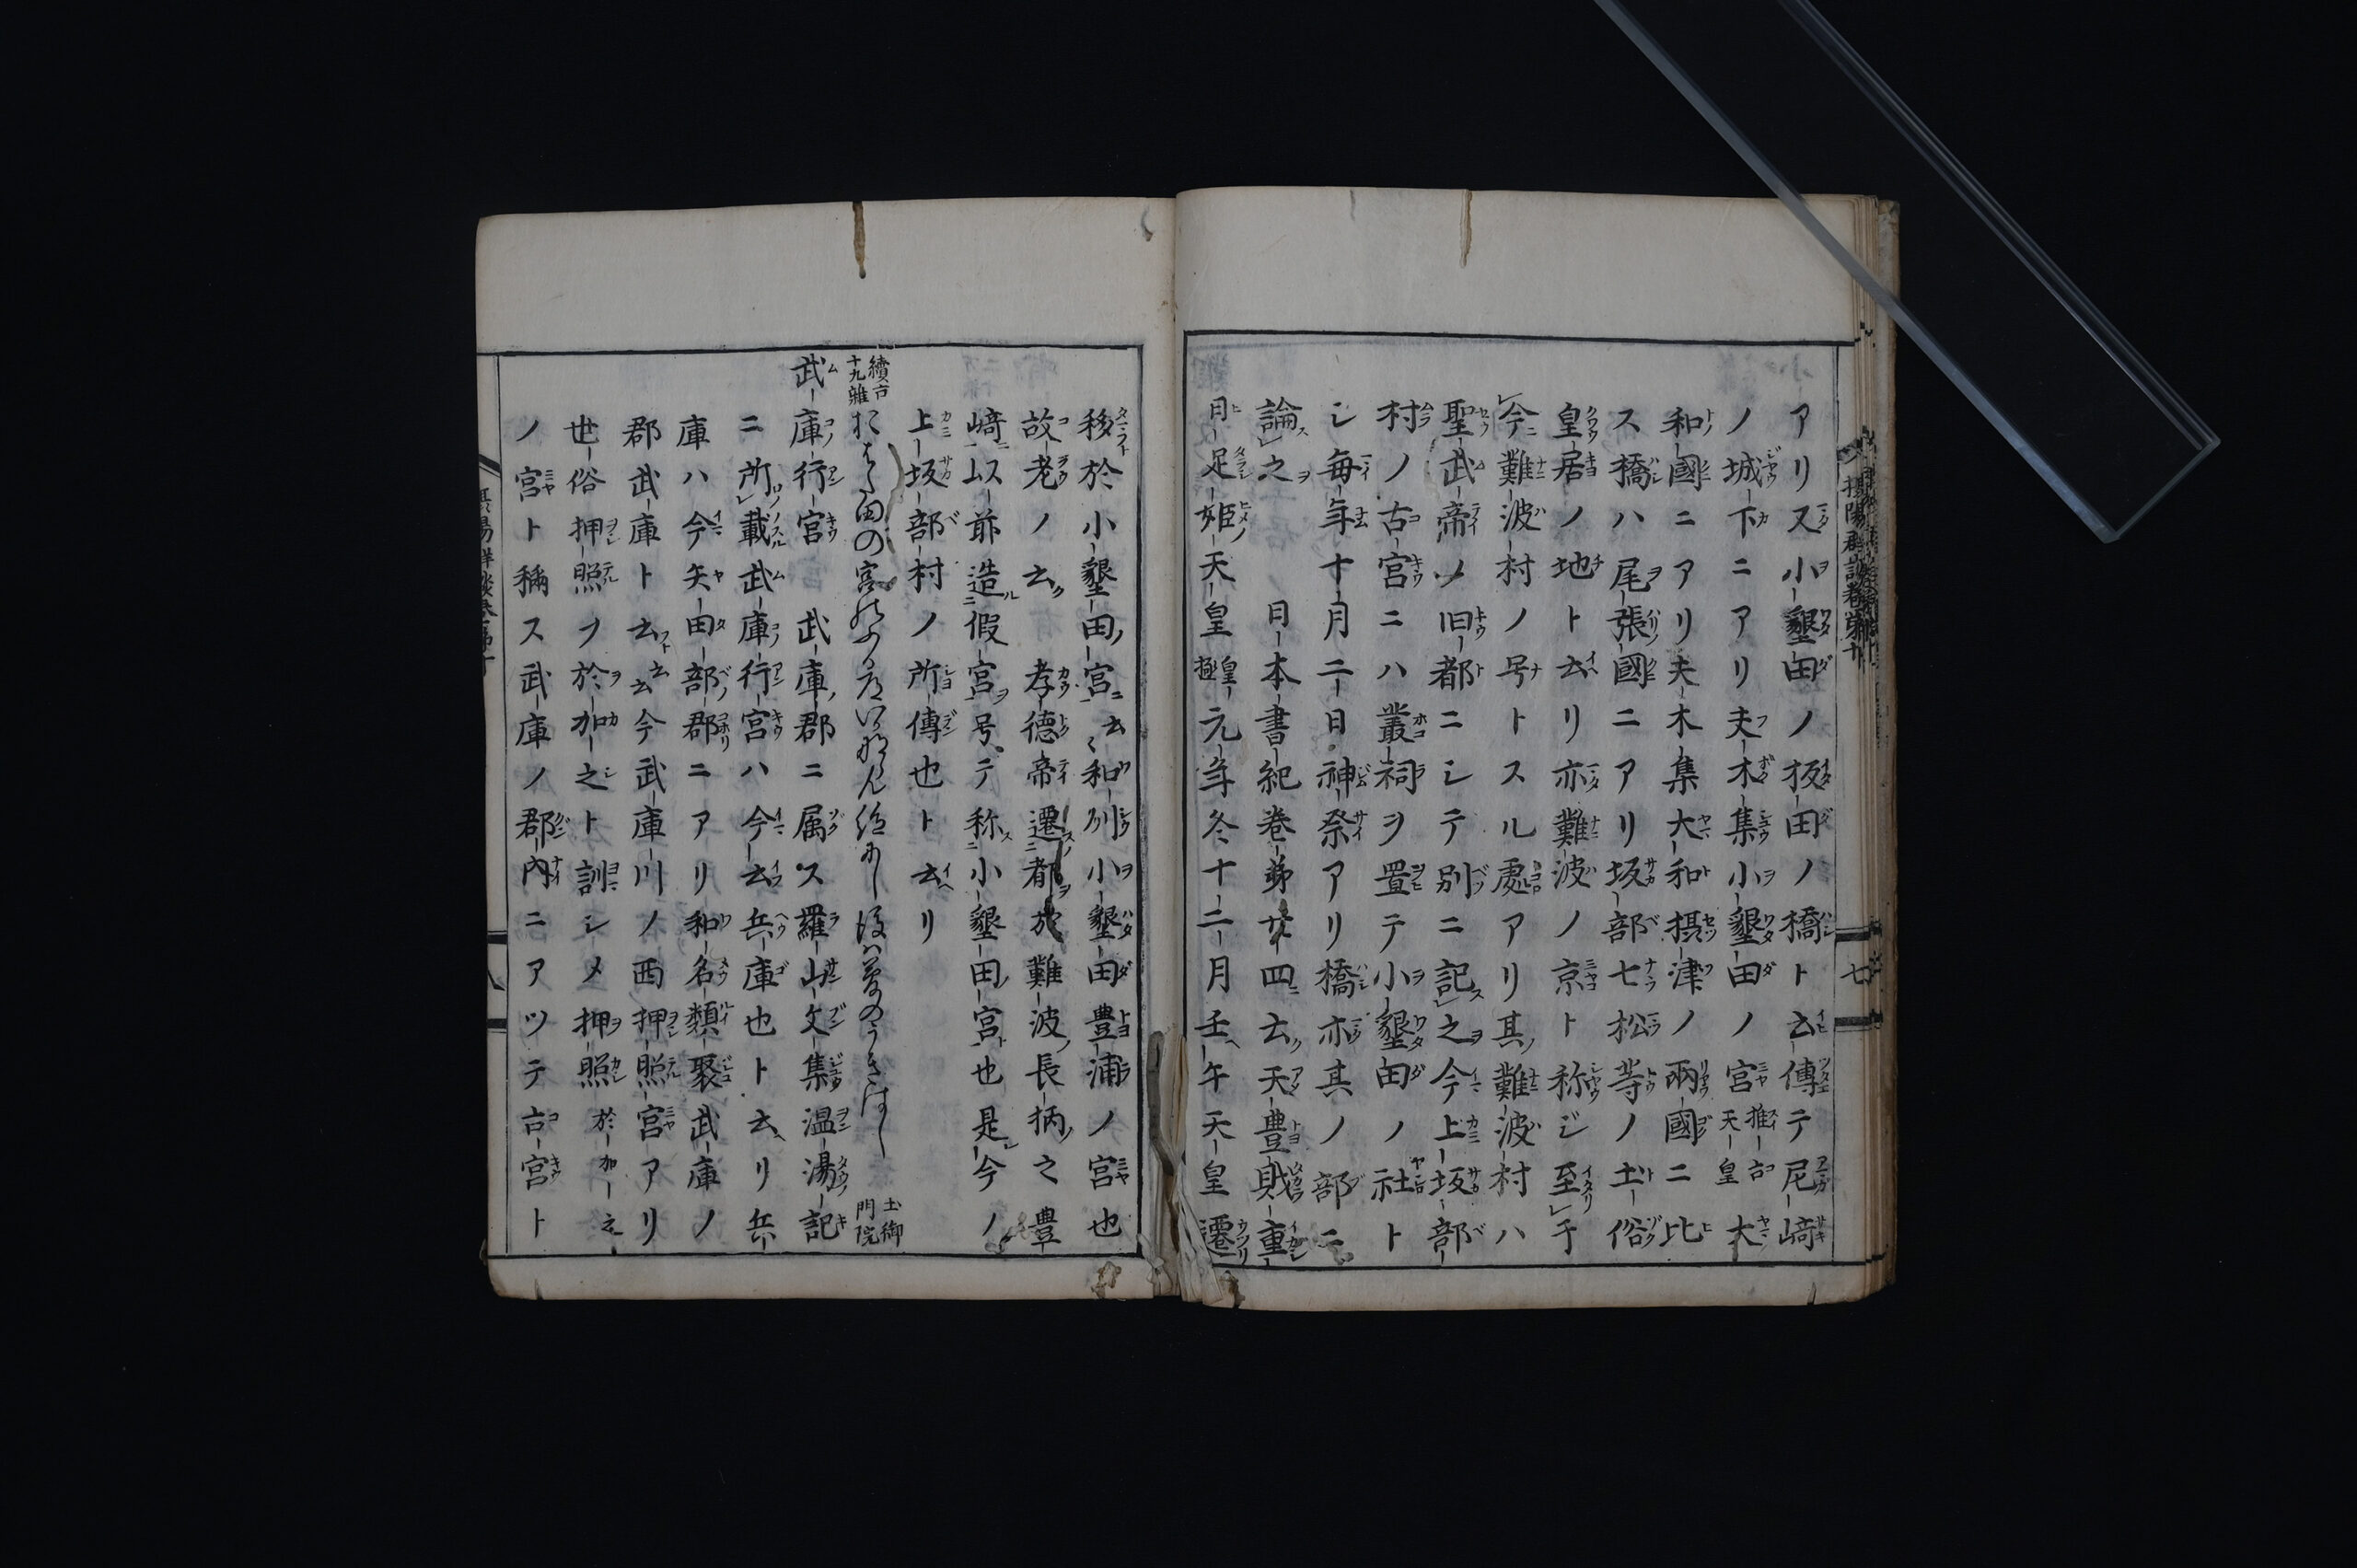 アリ又小墾田ノ板田ノ橋ト云傳テ尼﨑
ノ城下ニアリ夫木集小墾田ノ宮推古天皇大
和國ニアリ夫木集大和摂津ノ兩國ニ比
ス橋ハ尾張國ニアリ坂部七松等ノ土俗
皇居ノ地ト云リ亦難波ノ京ト称ジ至于
今難波村ノ号トスル處アリ其難波村ハ
聖武帝ノ旧都ニシテ別ニ記之今上坂部
村ノ古宮ニハ叢祠ヲ置テ小墾田ノ社ト
シ毎年十月二日神祭アリ橋亦其ノ部ニ
論之 日本書紀巻第廿四云天豊財重
日足姫天皇皇極元年冬十二月壬午天皇遷
摂陽群談巻第十
七
移於小墾田宮云云和州小墾田豊浦ノ宮也
故老ノ云 孝徳帝遷都於難波長柄之豊
﨑以前造假宮号テ称小墾田宮也是今ノ
上坂部村ノ所傳也ト云リ
續古十九雜
土御門院
武庫行宮 武庫郡ニ属ス羅山文集温湯記
ニ所載武庫行宮ハ今云兵庫也ト云リ兵
庫ハ今矢田部郡ニアリ和名類聚武庫ノ
郡武庫ト云云今武庫川ノ西押照宮アリ
世俗押照ヲ於加之ト訓シメ押照於加之
ノ宮ト稱ス武庫ノ郡内ニアツテ古宮ト